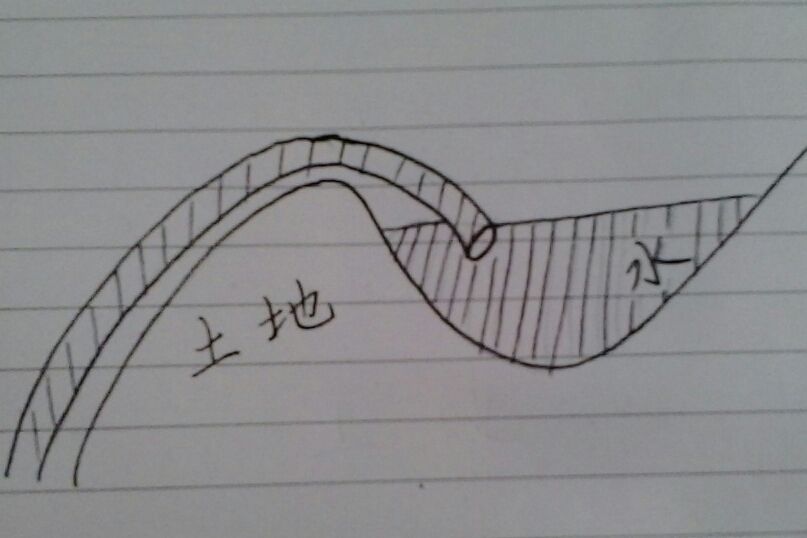 土地
水